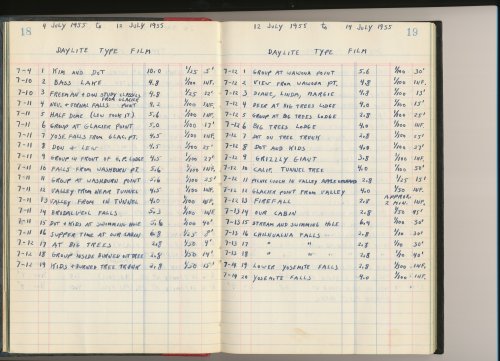 18
4 JULY 1955 to 12 JULY 1955
DAYLITE TYPE FILM
7-4 1 KIM AND DOT 10.0 1/25 5'
7-10 2 BASS LAKE 4.8 1/100 INF.
7-10 3 FREEMAN + DON STUDY GLACIERS FROM GLACIER POINT 4.8 1/25 12'
7-11 4 NEV. + VERNAL FALLS 4.2 1/100 INF.
7-11 5 HALF DOME (LEW TOOK IT) 5.6 1/100 INF.
7-11 6 GROUP AT GLACIER POINT 5.0 1/100 17'
7-11 7 YOSE FALLS FROM GLAC. PT. 4.5 1/100 INF.
7-11 8 DON + LEW 4.5 1/100 25'
7-11 9 GROUP IN FRONT OF G.P. LODGE 4.5 1/100 27'
7-11 10 FALLS FROM WASHBURN PT. 5.6 1/100 INF.
7-11 11 GROUP AT WASHBURN POINT 5.6 1/100 25'
7-11 12 VALLEY FROM NEAR TUNNEL 4.5 1/100 INF.
7-11 13 VALLEY FROM IN TUNNEL 4.0 1/100 INF.
7-11 14 BRIDALVEIL FALLS 5.3 1/100 INF.
7-11 15 DOT + KIDS AT SWIMMIN HOLE 5.6 1/100 40'
7-11 16 SUPPER TIME AT OUR CABIN 6.8 1/25 8'
7-12 17 AT BIG TREES 2.8 1/50 9'
7-12 18 GROUP INSIDE BURNED OUT TREE 2.8 1/50 14'
7-12 19 KIDS + BURNED TREE TRUNK 2.8 1/50 15'
12 JULY 1955 to 14 JULY 1955
19
DAYLITE TYPE FILM
7-12 1 GROUP AT WAWONA POINT 5.6 1/100 30'
7-12 2 VIEW FROM WAWONA PT. 4.8 1/100 INF.
7-12 3 DIANE, LINDA, MARGIE 4.8 1/100 15'
7-12 4 DEER AT BIG TREES LODGE 4.0 1/100 15'
7-12 5 GROUP AT BIG TREES LODGE 2.8 1/100 25'
7-12 6 BIG TREES LODGE 4.0 1/100 INF.
7-12 7 DOT ON TREE TRUNK 2.8 1/100 25'
7-12 8 DOT AND KIDS 4.0 1/100 27'
7-12 9 GRIZZLY GIANT 3.8 1/100 INF.
7-12 10 CALIF. TUNNEL TREE 4.0 1/100 50'
7-12 11 PICNIC LUNCH IN VALLEY APPLE ORCHARD 2.8 1/25 15'
7-12 12 GLACIER POINT FROM VALLEY 4.0 1/50 INF.
7-12 13 FIREFALL 2.8 APPROX. 2 MIN. INF.
7-13 14 OUR CABIN 2.8 1/50 45'
7-13 15 STREAM AND SWIMMING HOLE 6.4 1/100 30'
7-13 16 CHILNUALNA FALLS 2.8 1/100 30'
7-13 17 " " 2.8 1/50 30'
7-13 18 " " 2.8 1/100 40'
7-14 19 LOWER YOSEMITE FALLS 2.8 1/100 INF.
7-14 20 YOSEMITE FALLS 4.0 1/100 INF.